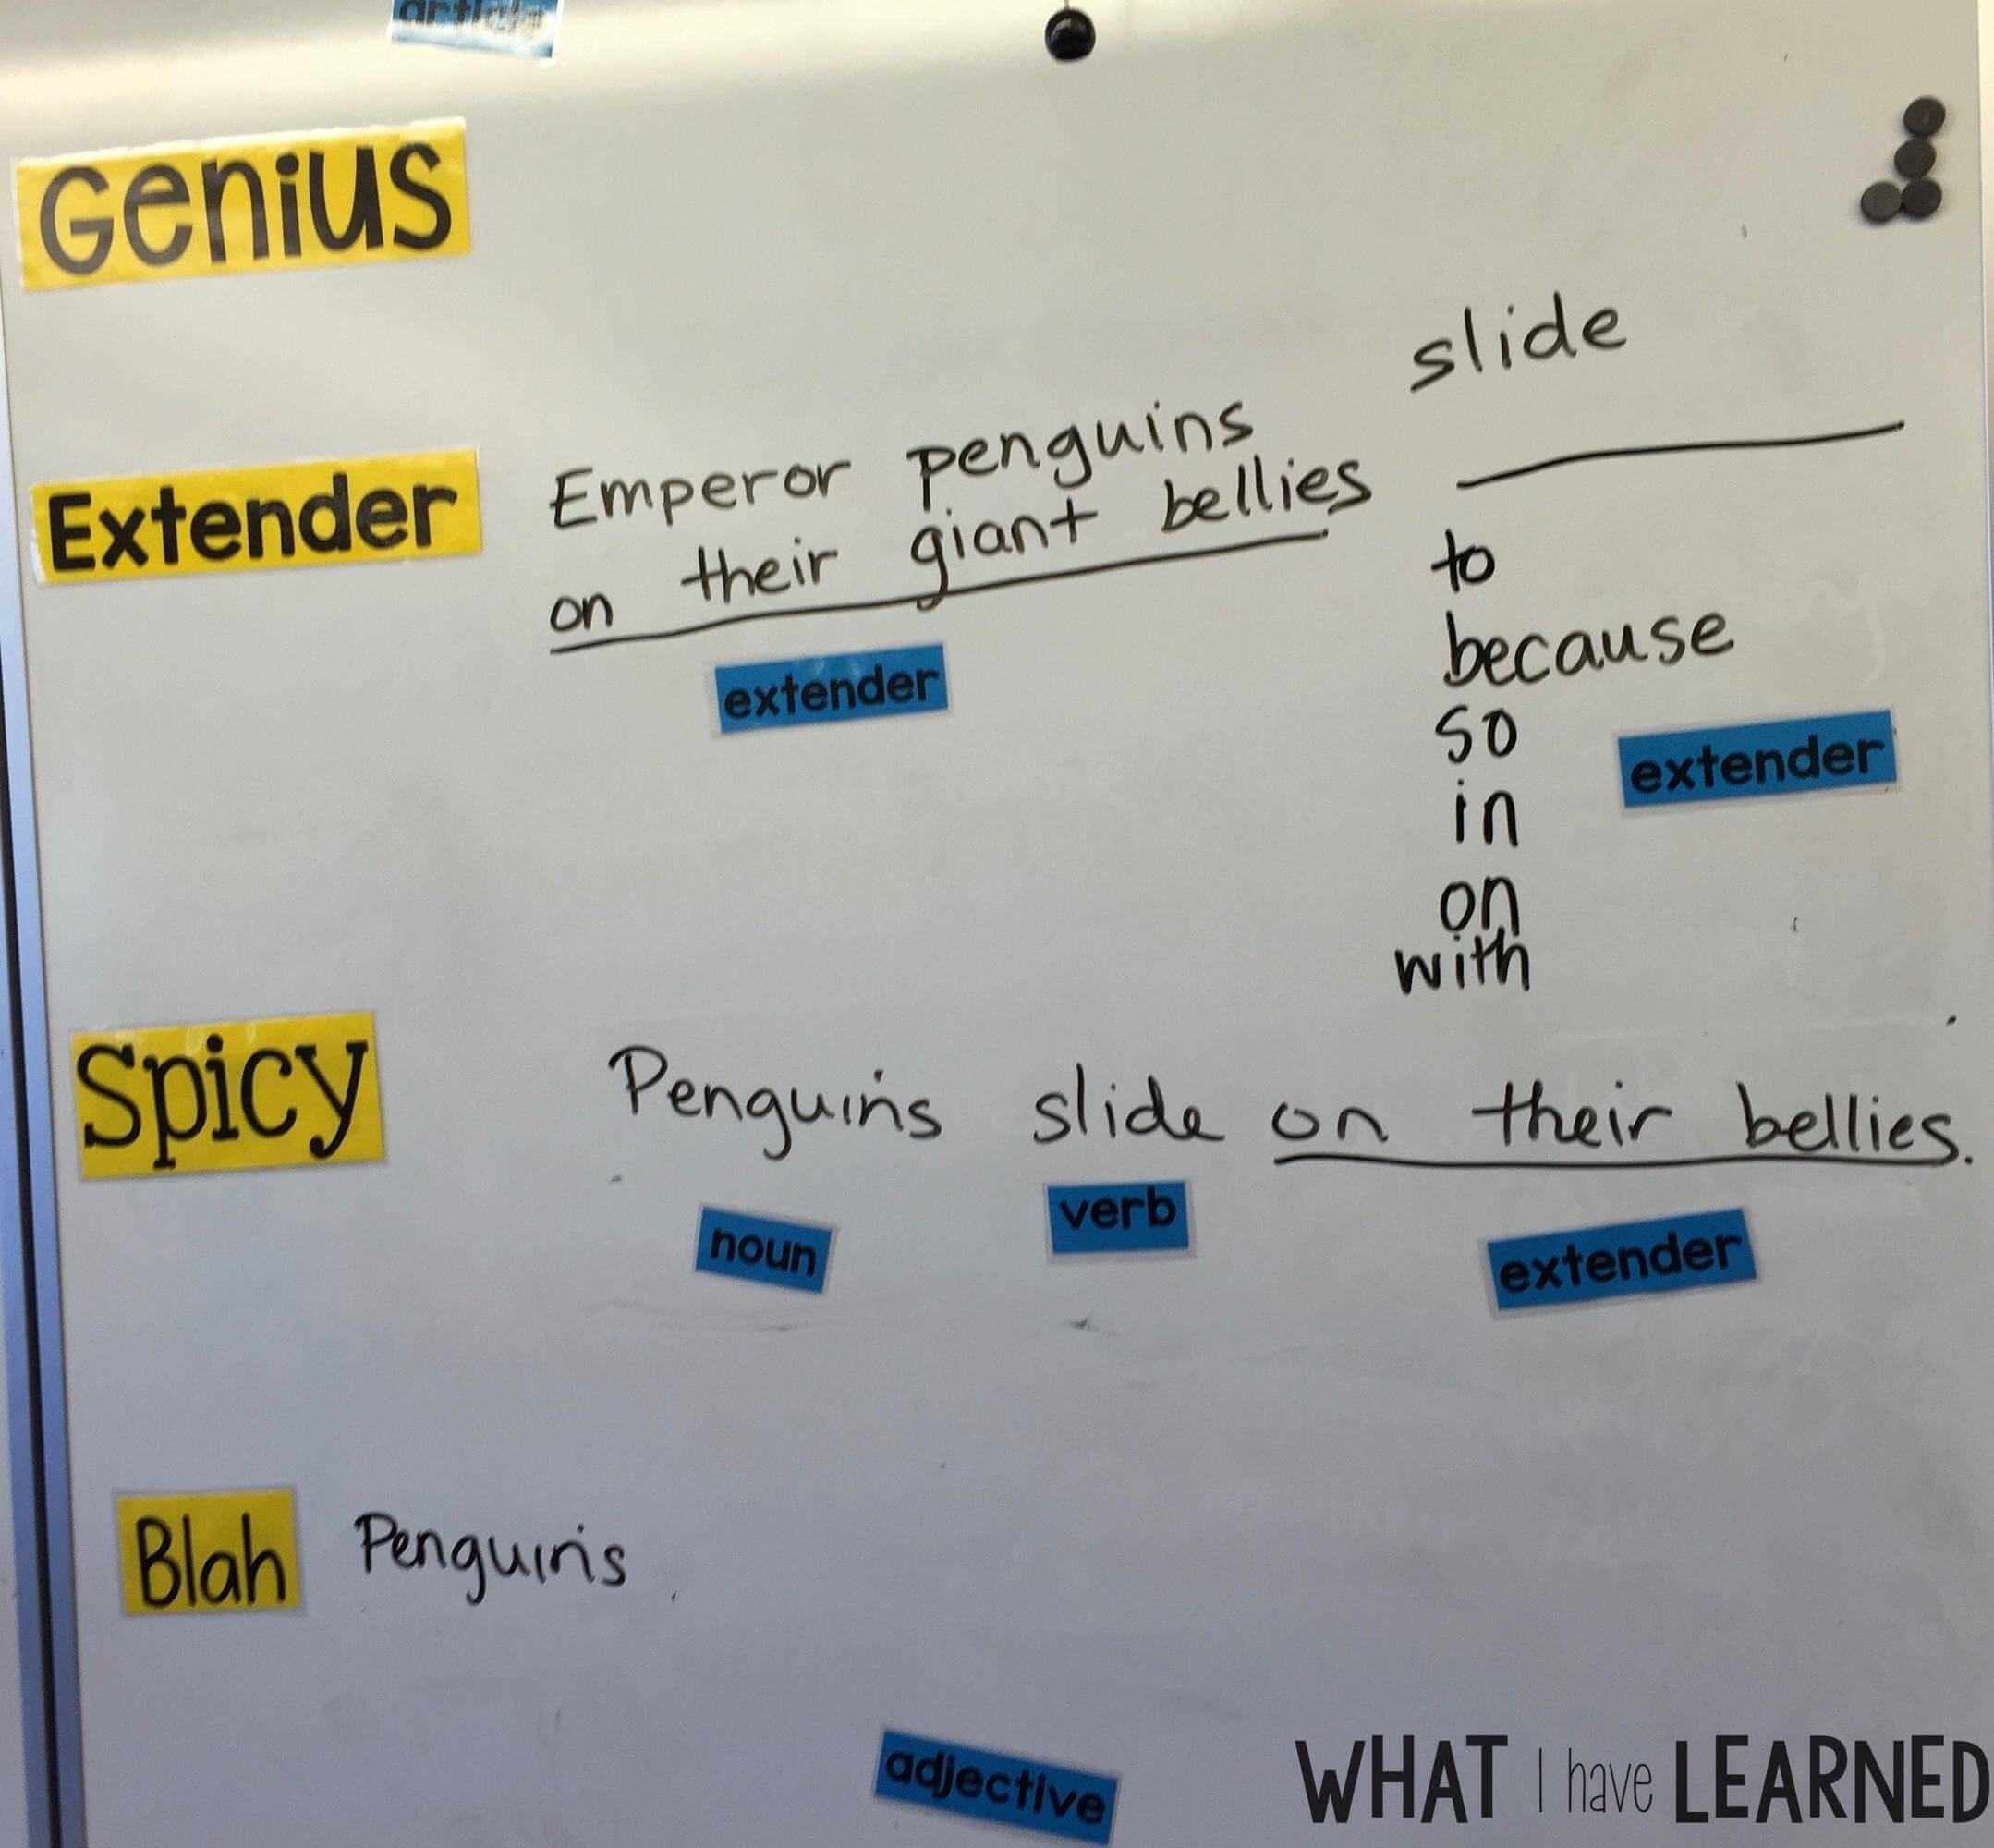 article
Genius
Extender
Emperor penguins slide
on their giant bellies
extender
to
because
so
in
on
with
extender
Spicy
Penguins slide on their bellies.
noun
verb
extender
Blah
Penguins
adjective
WHAT I have LEARNED